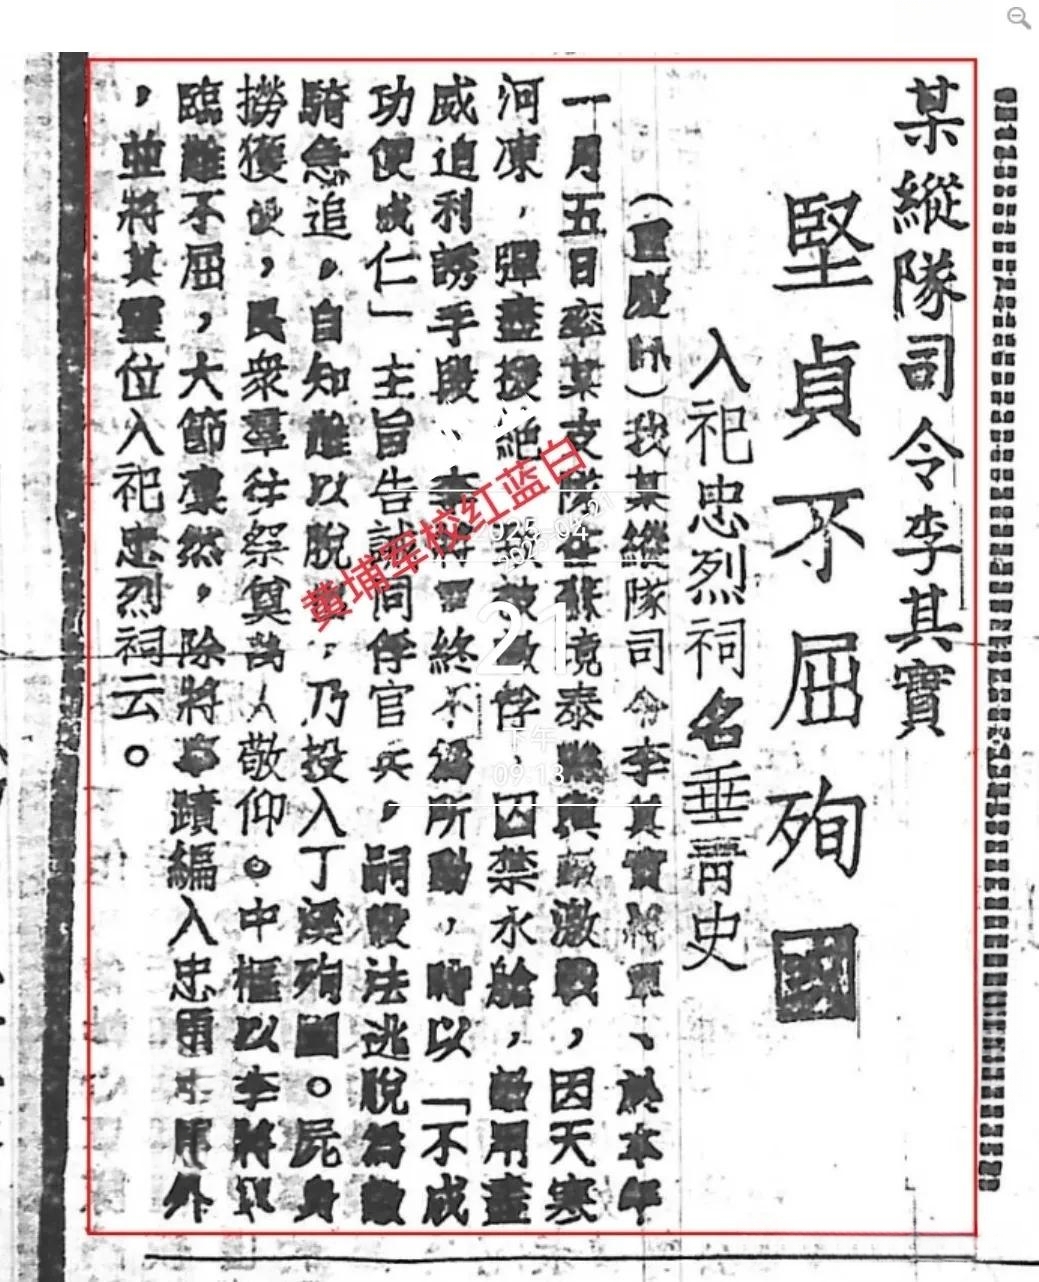 某縱隊司令李其實
堅貞不屈殉國
入祀忠烈祠名垂靑史
(重慶訊)我某縱隊司令李其實將軍、於本年
一月五日率某支隊在蘇境泰縣與敵激戰,因天寒
河凍,彈盡援絕被敵俘,囚禁永艙,敵用盡
威迫利誘手段、李將軍終不爲所動,時以「不成
功便成仁」主旨告誡同俘官兵,嗣設法逃脫爲敵
騎急追,自知難以脫,乃投入丁溪殉國。屍身
撈獲後,民衆羣往祭奠萬人敬仰。中樞以李將軍
臨難不屈,大節凜然,除將事蹟編入忠外
,並將其靈位入祀忠烈祠云。
黄埔军校红蓝白
21
下午
09:13